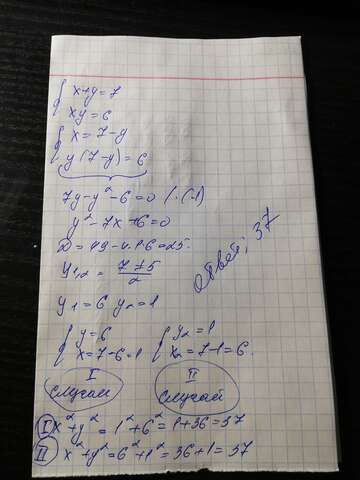 x+y=7
xy=6
x=7-y
y(7-y)=6
7y-y²-6=0 /·(-1)
y²-7x+6=0
D=49-4·1·6=25
y₁,₂ = (7±5)/2
Ответ: 37
y₁=6 y₂=1
y=6
x=7-6=1
y₂=1
x₂=7-1=6.
I
случай
II
случай
I x²+y²=1²+6²=1+36=37
II x²+y²=6²+1²=36+1=37